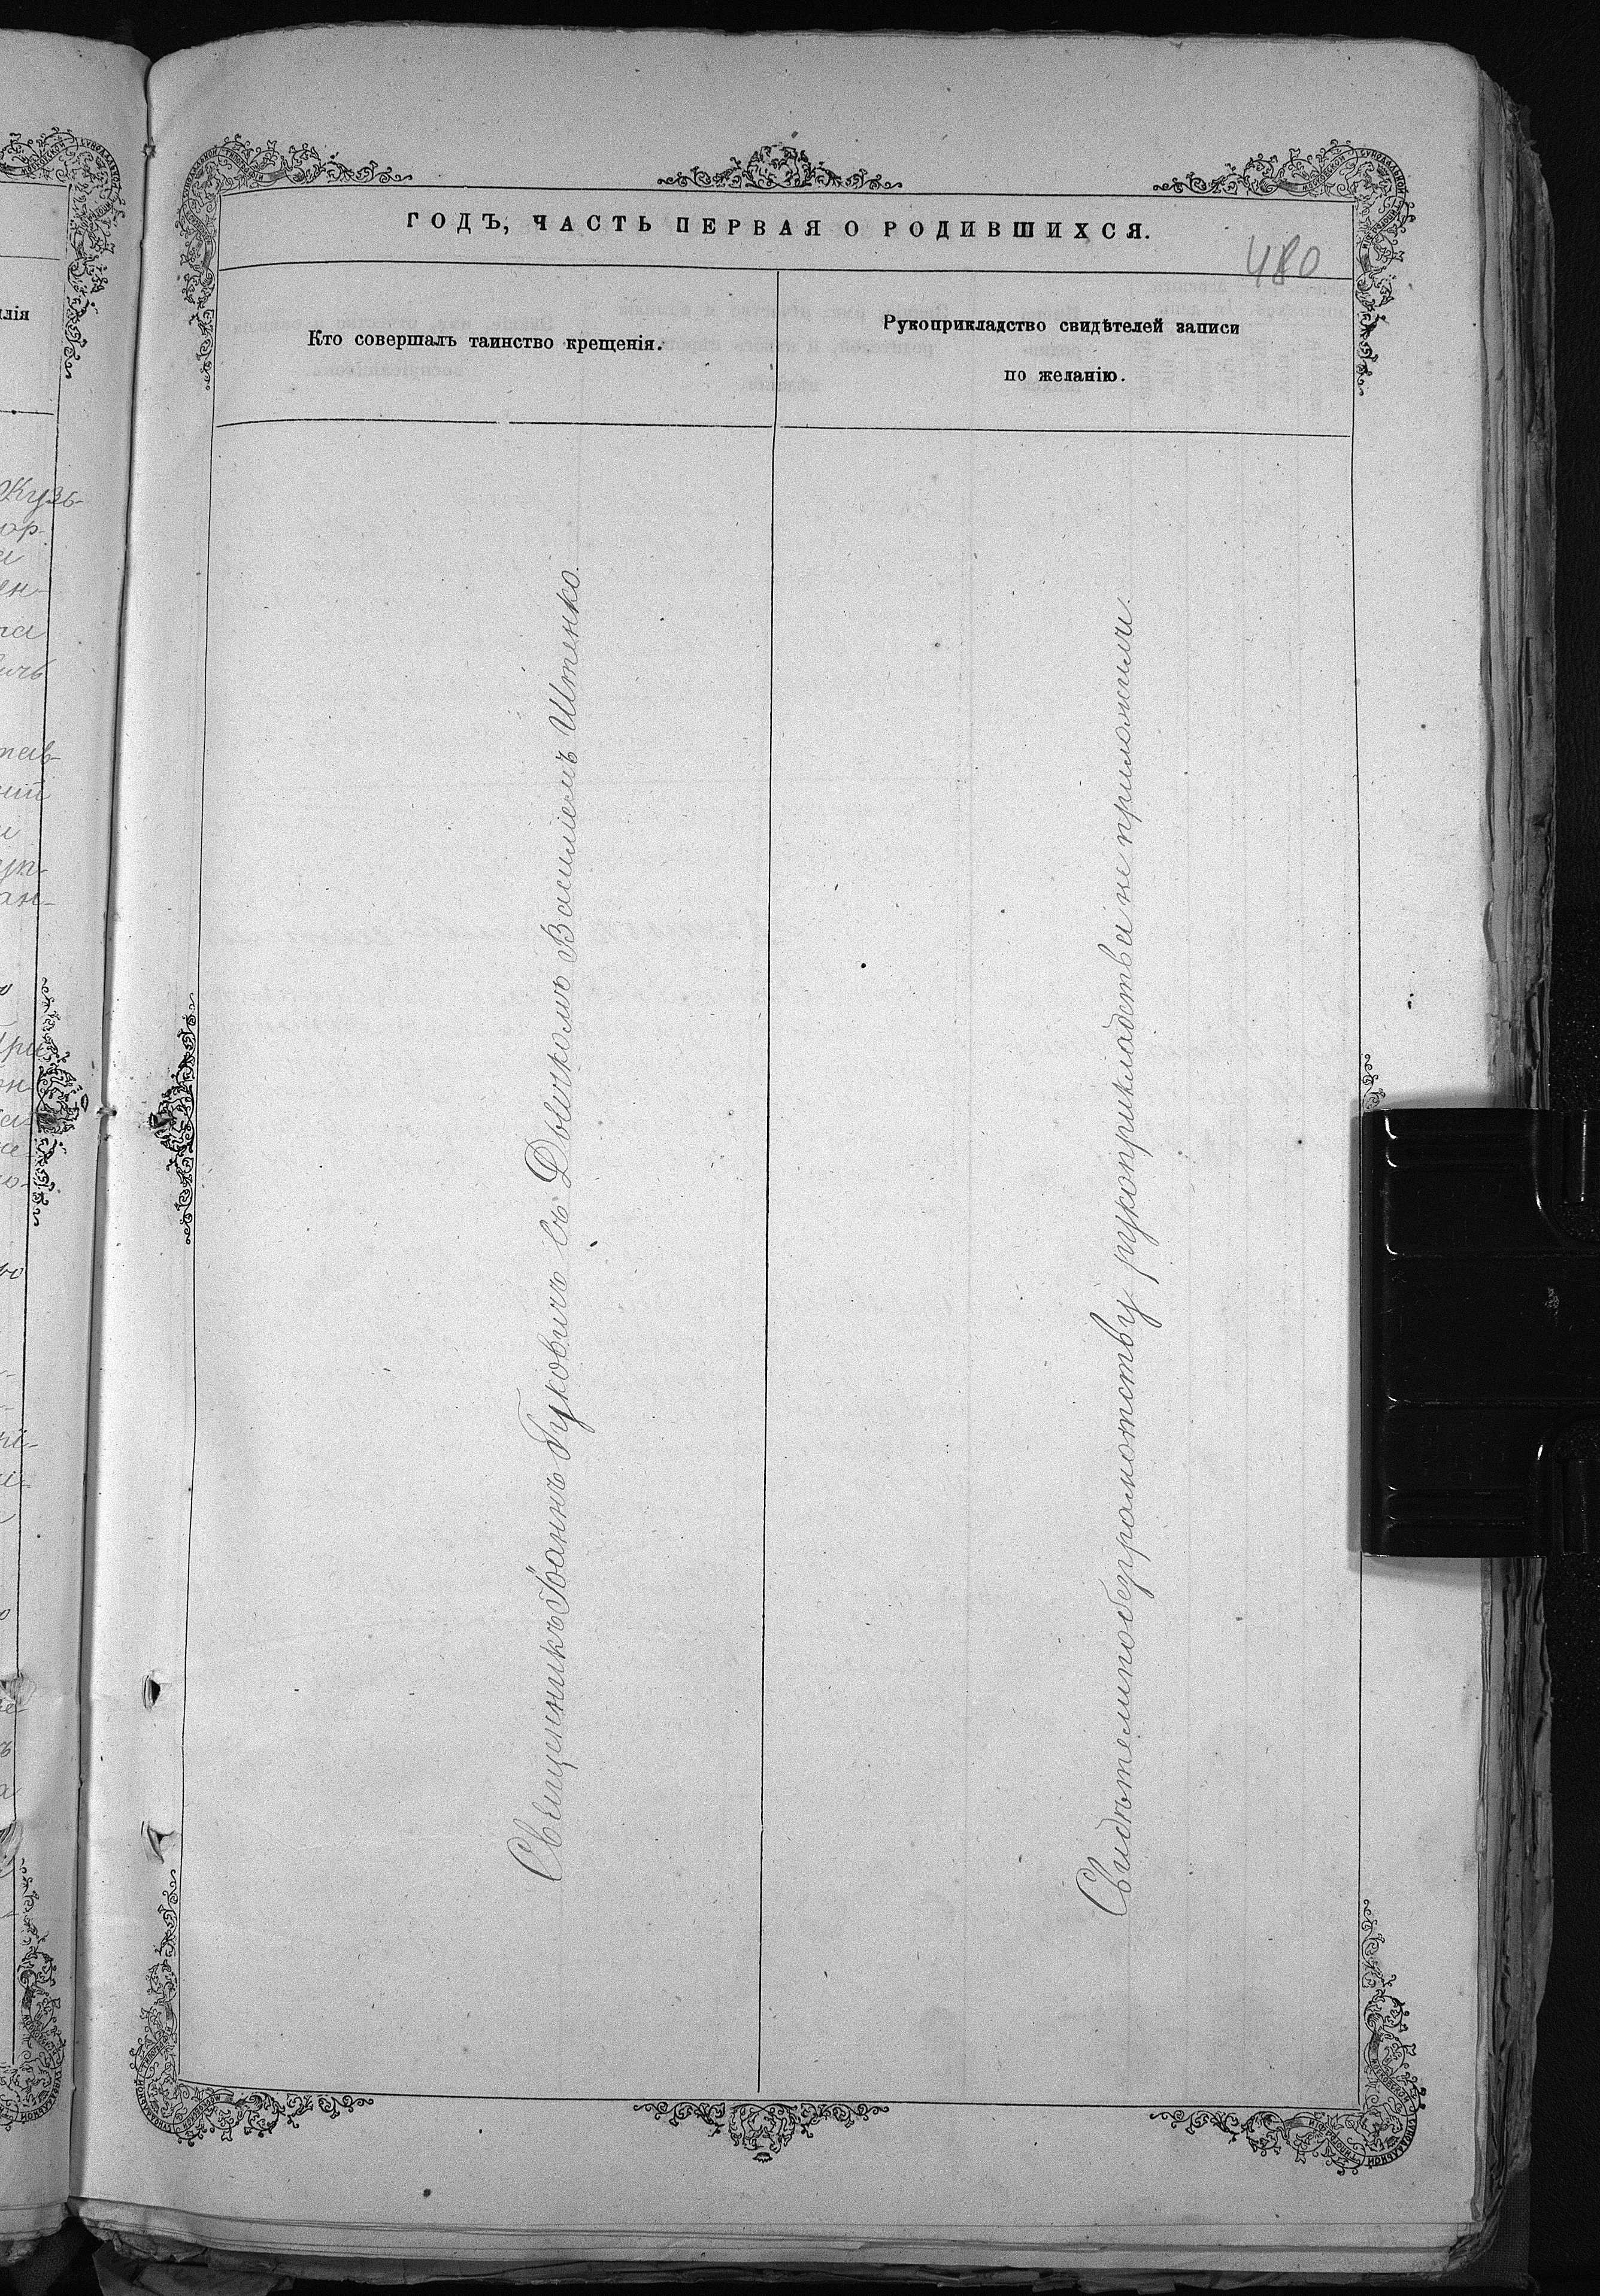 ГОДЪ, ЧАСТЬ ПЕРВАЯ О РОДИВШИХСЯ.
480
Кто совершалъ таинство крещенія.
Рукоприкладство свидѣтелей записи
по желанію.
Священникъ Іоаннъ Гуковичъ съ Дьячкомъ Василемъ Итенко.
Свидѣтели по безграмотству рукоприкладства не приложили.
лія
Кузь-
ор-
ен-
на
ичь
тав-
ній
ан-